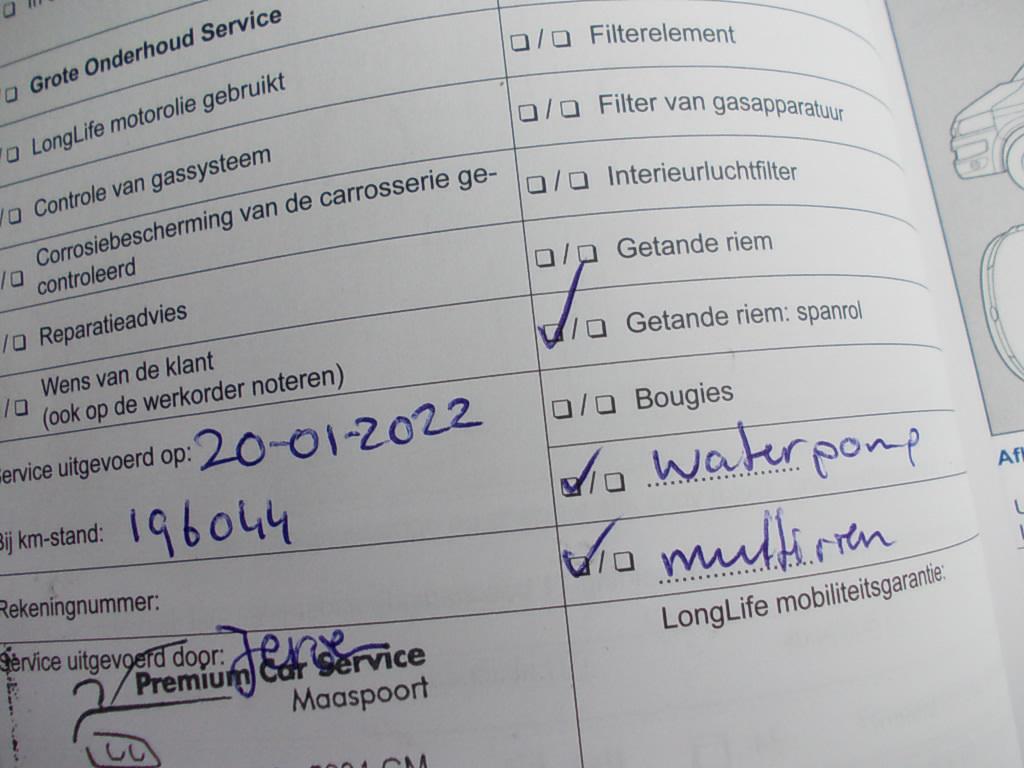 Grote Onderhoud Service
LongLife motorolie gebruikt
Controle van gassysteem
Corrosiebescherming van de carrosserie ge-
controleerd
Reparatieadvies
Wens van de klant
(ook op de werkorder noteren)
Service uitgevoerd op: 20-01-2022
Bij km-stand: 196044
Rekeningnummer:
Service uitgevoerd door:
Premium Car Service
Maaspoort
/ Filterelement
/ Filter van gasapparatuur
/ Interieurluchtfilter
/ Getande riem
/ Getande riem: spanrol
/ Bougies
/ waterpomp
/ multiriem
LongLife mobiliteitsgarantie: